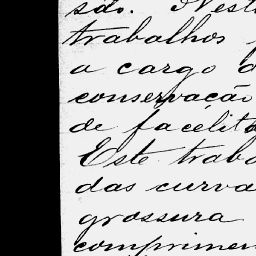 são. Nest
trabalhos
a cargo d
conservação
de facelit
Este traba
das curva
grossura
comprimen